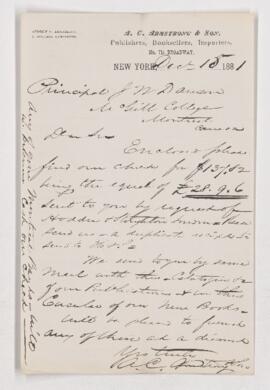 A. C. ARMSTRONG & SON,
Publishers, Booksellers, Importers,
No. 714 BROADWAY.
NEW YORK, Dec 15 1881
Principal J W Dawson
McGill College
Montreal
Canada
Dear Sir
Enclosed please
find our check for $137.52
being the equal of £28.9.6
sent to you by request of
Hodder &
send us a duplicate receipt to
send to H & S
We send to you by same
Mail with Catalogue
of our Publications & in
Circular of our New Books
will be pleased to furnish
any of these at a discount
Yrs truly
A. C. Armstrong & Son
any of your Montreal Banks will
Cash our Check